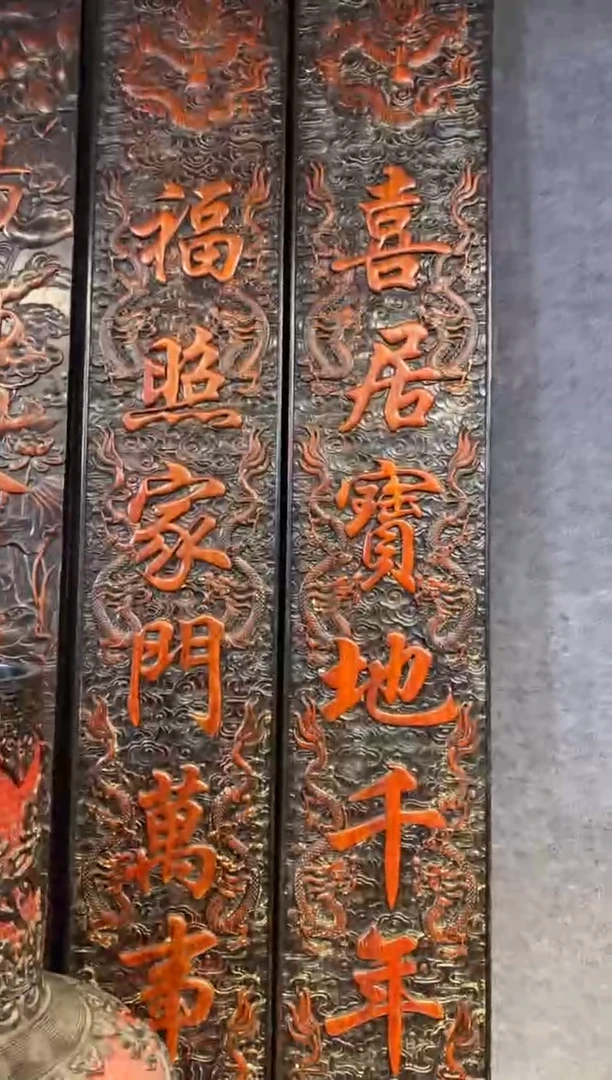 喜居寶地千年
福照家門萬事